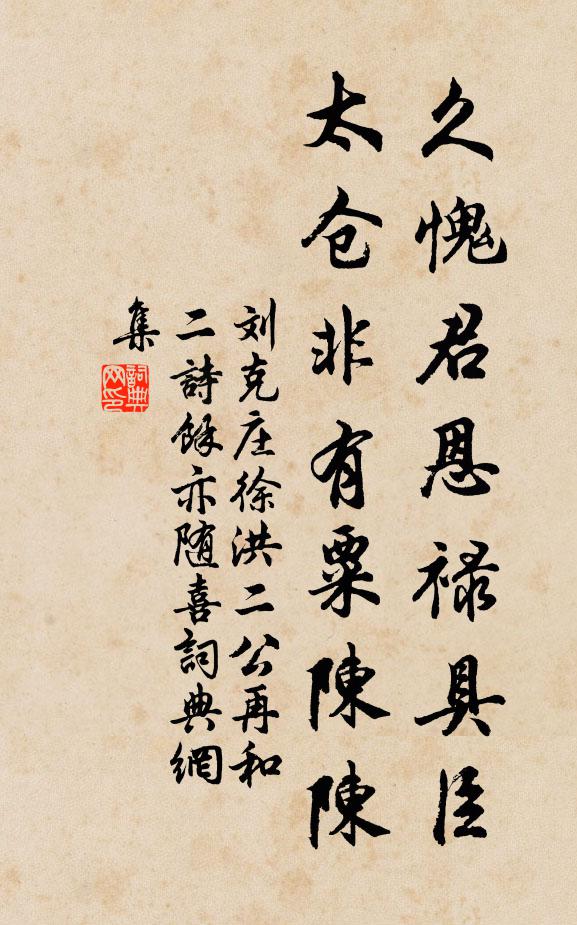 久愧君恩禄具臣
太仓非有粟陳陳
刘克庄徐洪二公再和
二詩餘亦随喜詞典網
集
詞典
网印